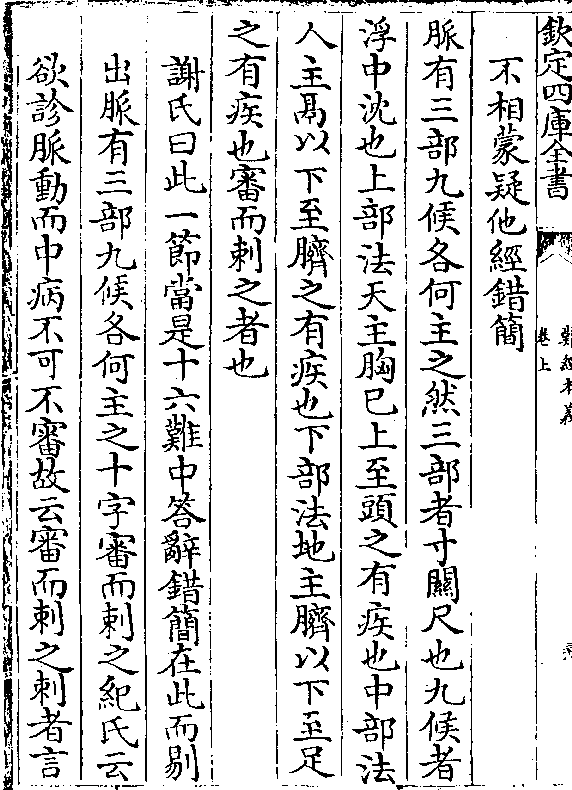 欽定四庫全書
難經本義
卷上
不相蒙疑他經錯簡
脈有三部九候各何主之然三部者寸關尺也九候者
浮中沈也上部法天主胸已上至頭之有疾也中部法
人主鬲以下至臍之有疾也下部法地主臍以下至足
之有疾也審而刺之者也
謝氏曰此一節當是十六難中答辭錯簡在此而剔
出脈有三部九候各何主之十字審而刺之紀氏云
欲診脈動而中病不可不審故云審而刺之刺者言